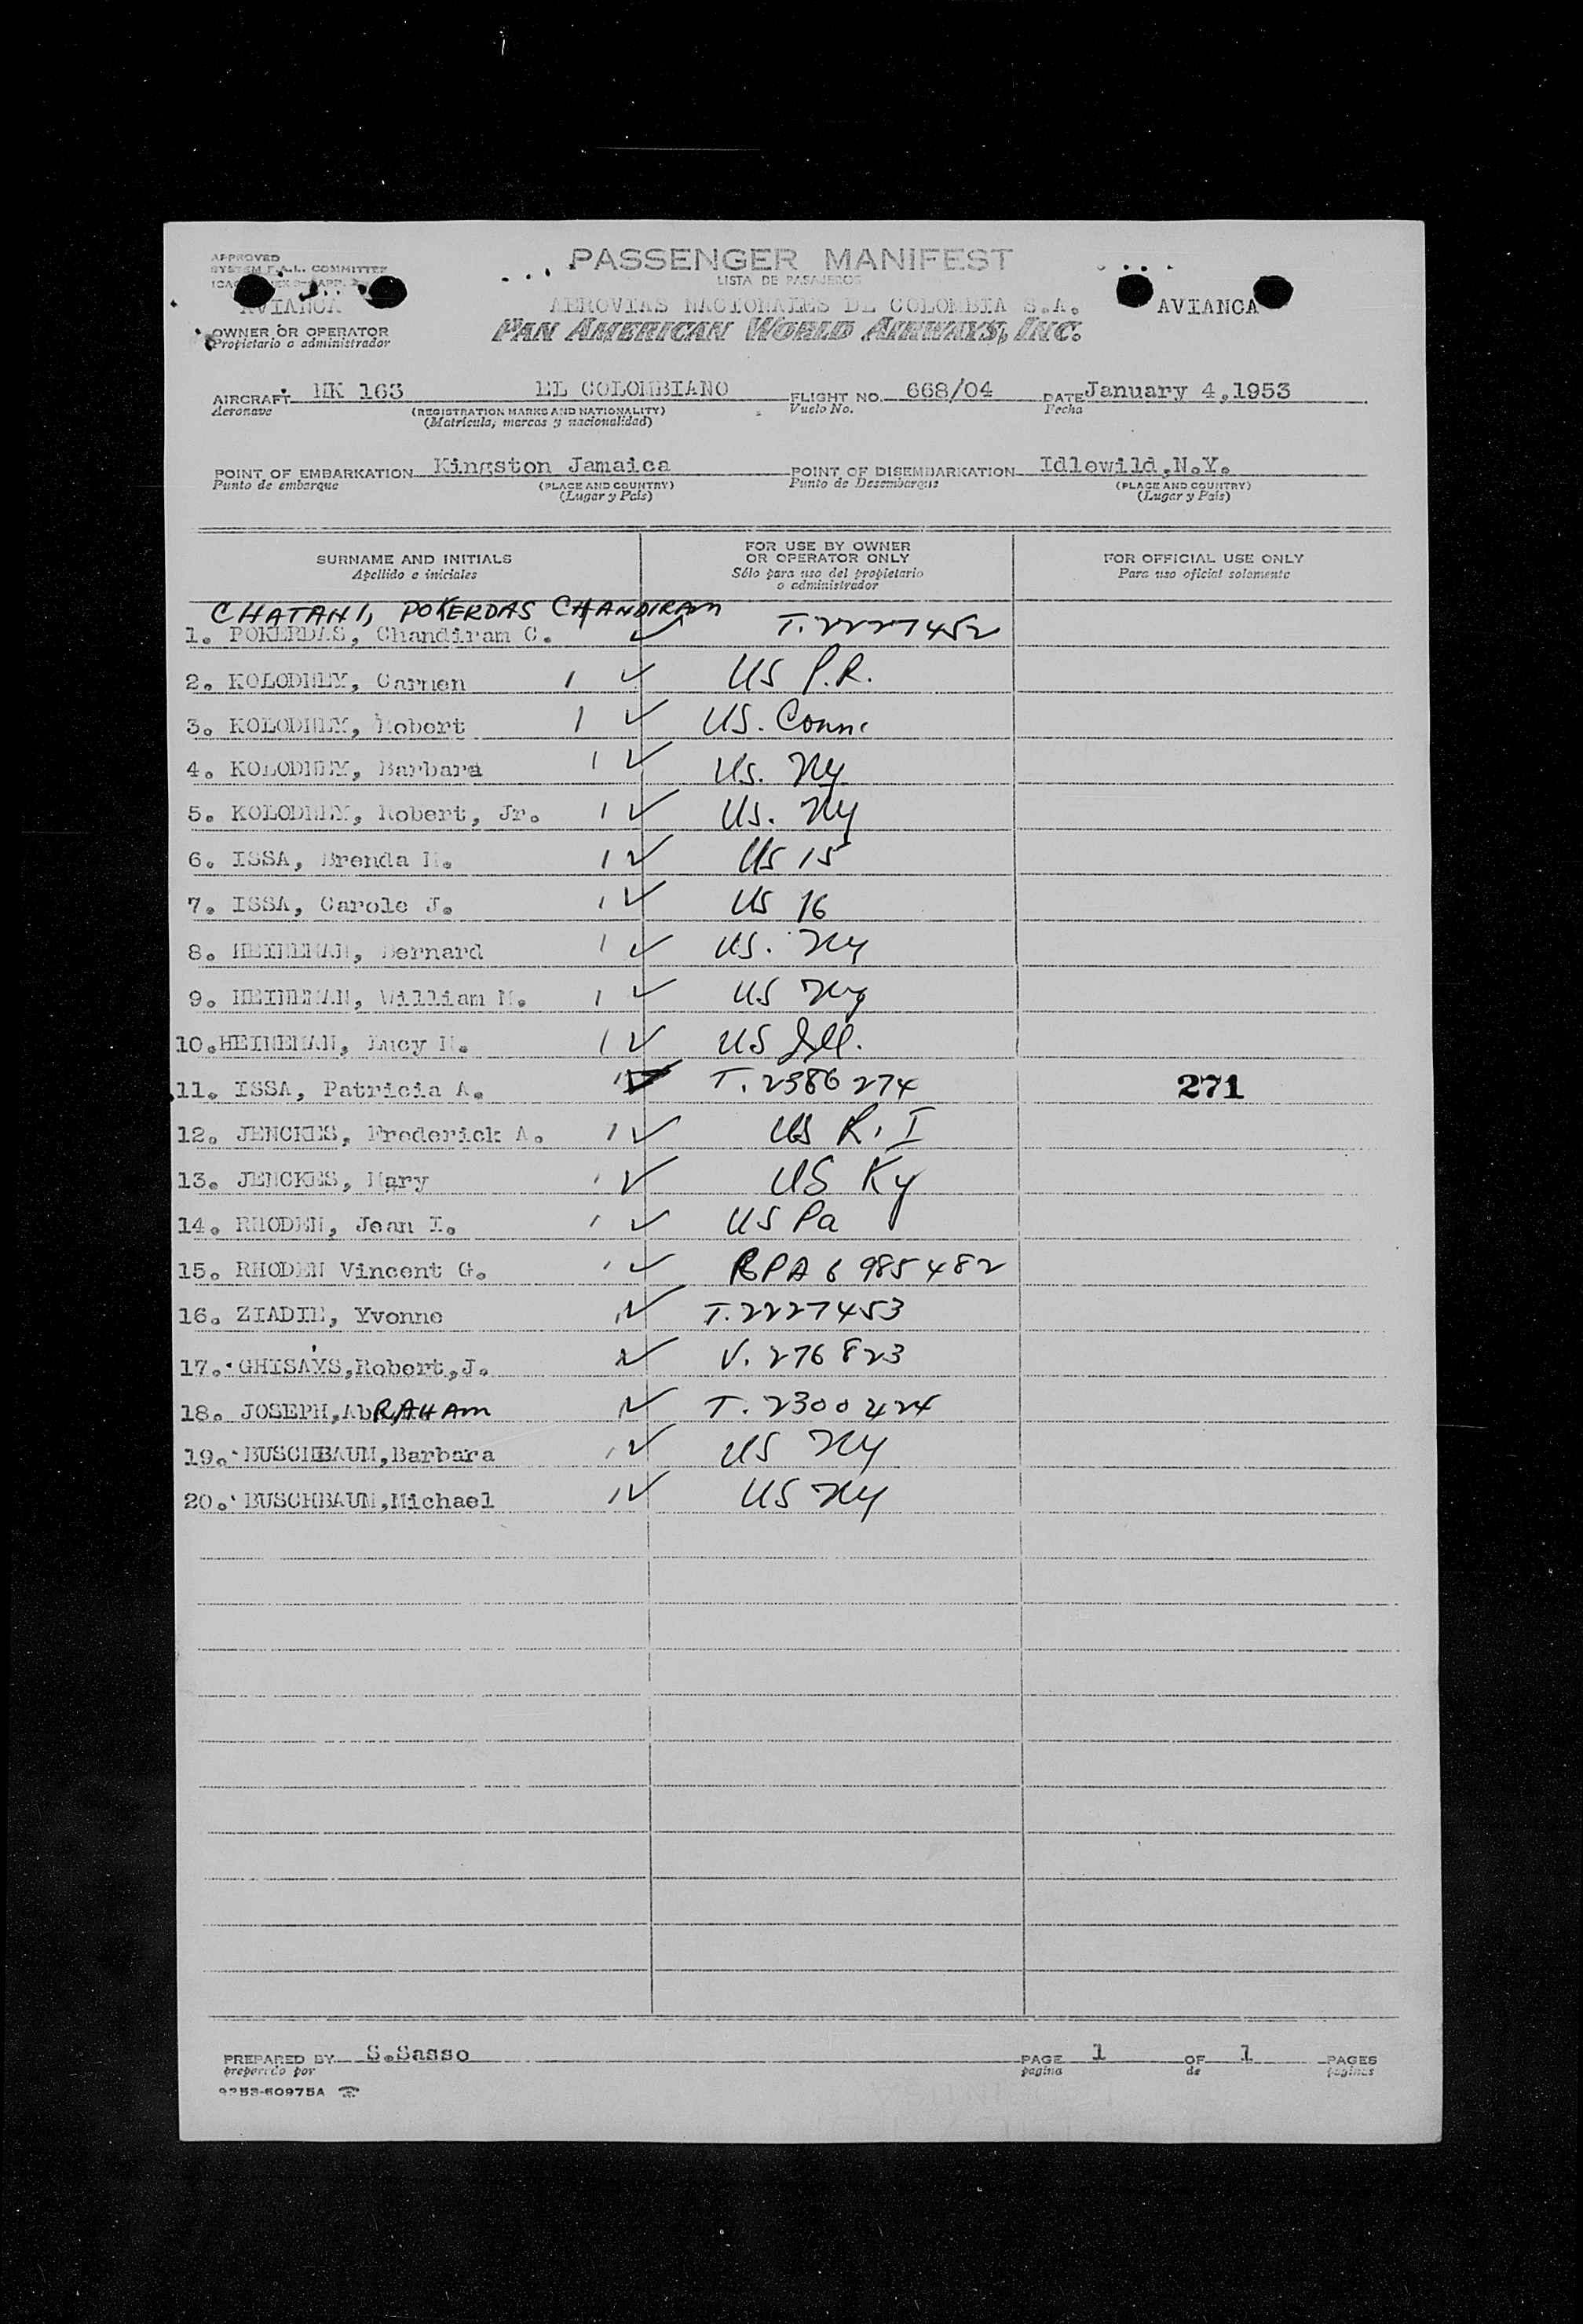 PASSENGER MANIFEST
LISTA DE PASAJEROS
APPROVED
SYSTEM F.A.L. COMMITTEE
AVIANCA
AEROVIAS NACIONALES DE COLOMBIA S.A.
AVIANCA
PAN AMERICAN WORLD AIRWAYS, INC.
OWNER OR OPERATOR
Propietario o administrador
AIRCRAFT HK 163 EL COLOMBIANO FLIGHT NO. 668/04 DATE January 4,1953
Aeronave (REGISTRATION MARKS AND NATIONALITY) Vuelo No. Fecha
(Matricula, marcas y nacionalidad)
POINT OF EMBARKATION Kingston Jamaica POINT OF DISEMBARKATION Idlewild,N.Y.
Punto de embarque (PLACE AND COUNTRY) Punto de Desembarque (PLACE AND COUNTRY)
(Lugar y País) (Lugar y País)
SURNAME AND INITIALS
Apellido e iniciales
FOR USE BY OWNER
OR OPERATOR ONLY
Sólo para uso del propietario
o administrador
FOR OFFICIAL USE ONLY
Para uso oficial solamente
CHATANI, POKERDAS CHANDIRAM
1. POKERDAS, Chandiram C. ✓ T.2227452
2. KOLODNEY, Carmen 1 ✓ US P.R.
3. KOLODNEY, Robert 1 ✓ US. Conn.
4. KOLODNEY, Barbara 1 ✓ US. NY
5. KOLODNEY, Robert, Jr. 1 ✓ US. NY
6. ISSA, Brenda M. 1 ✓ US 15
7. ISSA, Carole J. 1 ✓ US 16
8. HEINEMAN, Bernard 1 ✓ US. NY
9. HEINEMAN, William M. 1 ✓ US NY
10.HEINEMAN, Lucy N. 1 ✓ US Ill.
11. ISSA, Patricia A. 1 ✓ T. 2386274 271
12. JENCKES, Frederick A. 1 ✓ US R.I
13. JENCKES, Mary 1 ✓ US Ky
14. RHODEN, Jean I. 1 ✓ US Pa
15. RHODEN Vincent G. 1 ✓ RPA 6 985 482
16. ZIADIE, Yvonne 1 ✓ T.2227453
17. GHISAYS,Robert,J. 1 ✓ V. 276823
18. JOSEPH,AbRAHAM 1 ✓ T. 2300424
19. BUSCHBAUM,Barbara 1 ✓ US NY
20. BUSCHBAUM,Michael 1 ✓ US NY
PREPARED BY S.Sasso PAGE 1 OF 1 PAGES
preparado por pagina de paginas
9253-60975A